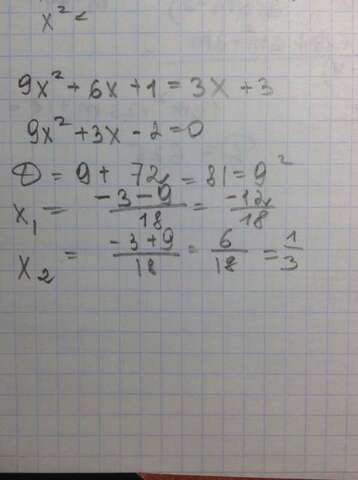 x² <
9x² + 6x + 1 = 3x + 3
9x² + 3x - 2 = 0
D = 9 + 72 = 81 = 9²
x₁ = (-3-9)/18 = -12/18
x₂ = (-3+9)/18 = 6/18 = 1/3